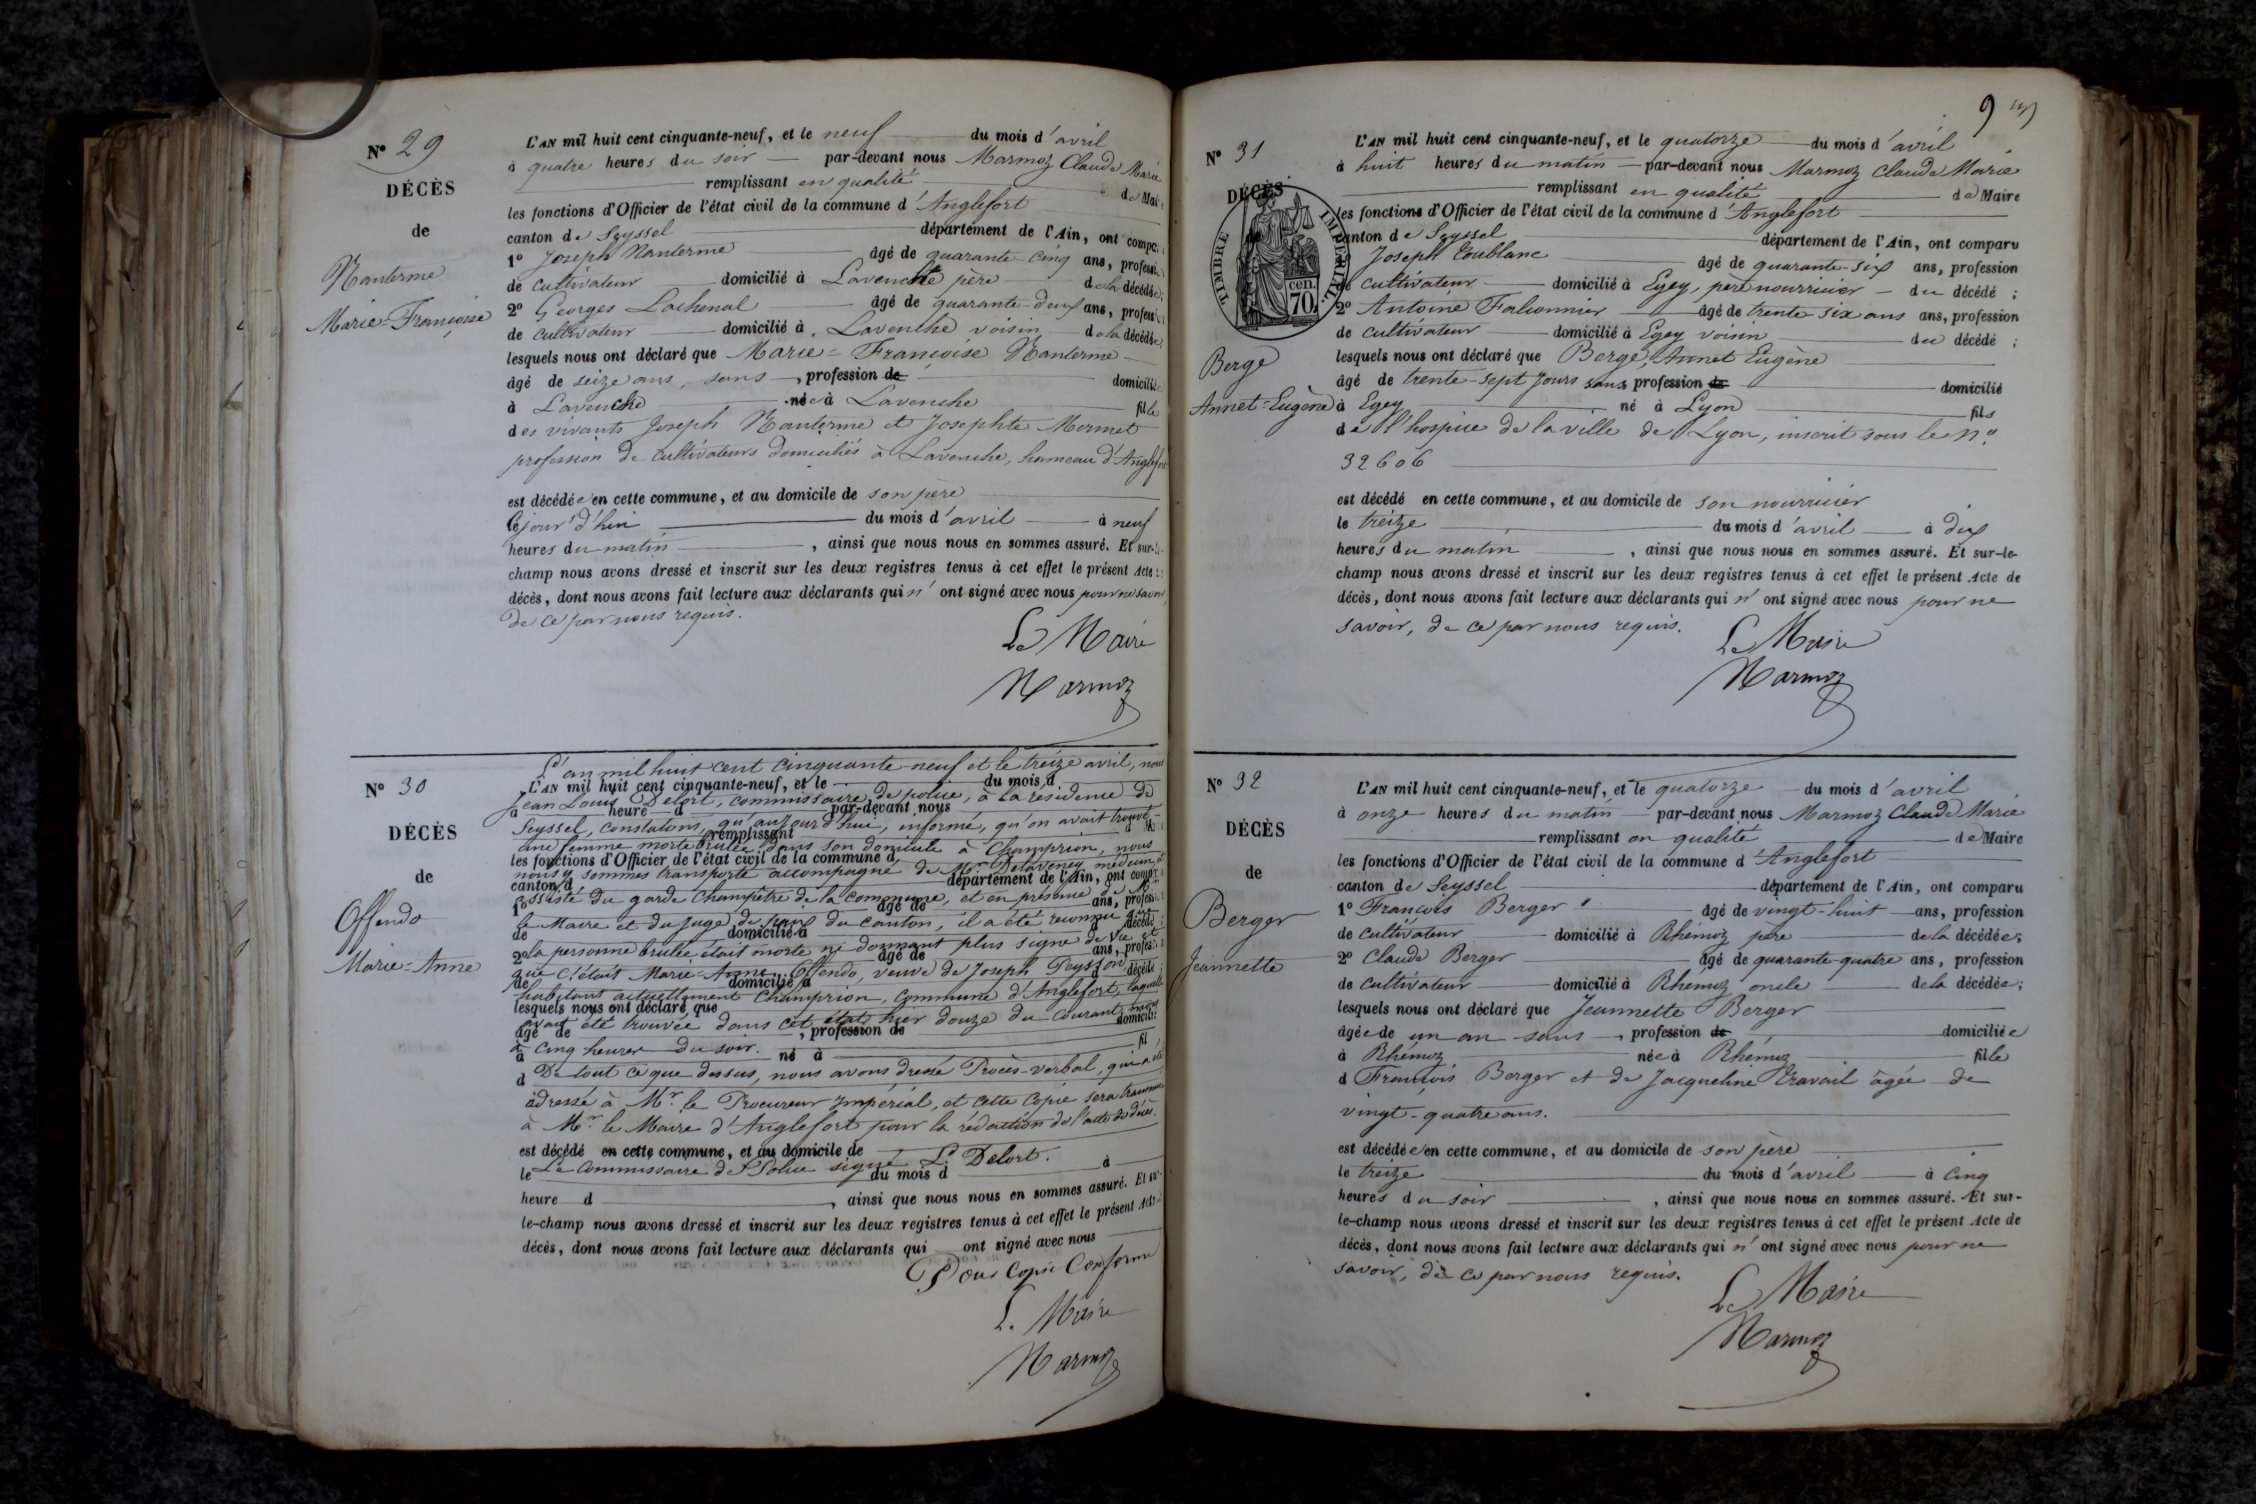 N° 29
DÉCÈS
de
Nanterme
Marie-Françoise
L'AN mil huit cent cinquante-neuf, et le neuf du mois d'avril
à quatre heures du soir par-devant nous Marmoz Claude Marie
remplissant en qualité de Mai
les fonctions d'Officier de l'état civil de la commune d'Anglefort
canton de Seyssel département de l'Ain, ont compa
1° Joseph Nanterme âgé de quarante-cinq ans, profession
de cultivateur domicilié à Lavenche père de la décédée;
2° Georges Lachenal âgé de quarante-deux ans, profess
de cultivateur domicilié à Lavenche voisin de la décédée
lesquels nous ont déclaré que Marie-Françoise Nanterme
âgé de seize ans, sans profession de domicilié
à Lavenche née à Lavenche fille
des vivants Joseph Nanterme et Josephte Mermet
profession de cultivateurs domiciliés à Lavenche, hameau d'Anglefort
est décédée en cette commune, et au domicile de son père
le jour d'hui du mois d'avril à neuf
heures du matin, ainsi que nous nous en sommes assuré. Et sur-le-
champ nous avons dressé et inscrit sur les deux registres tenus à cet effet le présent Acte
décès, dont nous avons fait lecture aux déclarants qui n'ont signé avec nous pour ne savoir,
de ce par nous requis.
Le Maire
Marmoz
N° 30
DÉCÈS
de
Offendo
Marie-Anne
L'an mil huit cent cinquante-neuf et le treize avril, nous
L'AN mil huit cent cinquante-neuf, et le du mois d
Jean Louis Delort, commissaire de police, à la résidence de
à heure d par-devant nous
Seyssel, constatons, qu'aujourd'hui, informé, qu'on avait trouvé
remplissant
une femme morte brûlée dans son domicile à Champrion, nous
les fonctions d'Officier de l'état civil de la commune d
nous y sommes transporté accompagné de Mr. Delaveney médecin, et
canton d département de l'Ain, ont comp
assisté du garde champêtre de la commune, et en présence de Mr
1° âgé de ans, profess
le Maire et du Juge de paix du canton, il a été reconnu que
de domicilié à décédé
la personne brûlée était morte ne donnant plus signe de vie et
2° âgé de ans, profess
que c'était Marie-Anne Offendo, veuve de Joseph Peysson
de domicilié à décédé
habitant actuellement Champrion, commune d'Anglefort, laquelle
lesquels nous ont déclaré que
avait été trouvée dans cet état hier douze du courant, mois
âgé de, profession de domicilié
à cinq heures du soir.
à né à fil
De tout ce que dessus, nous avons dressé Procès-verbal, qui a été
d
adressé à Mr. le Procureur Impérial, et cette copie sera transmise
à Mr. le Maire d'Anglefort pour la rédaction de l'acte de décès.
est décédé en cette commune, et au domicile de
Le Commissaire de Police signé L. Delort.
le du mois d à
heure d, ainsi que nous nous en sommes assuré. Et sur-
le-champ nous avons dressé et inscrit sur les deux registres tenus à cet effet le présent Acte
décès, dont nous avons fait lecture aux déclarants qui ont signé avec nous
Pour Copie Conforme
L. Maire
Marmoz
9
N° 31
DÉCÈS
de
TIMBRE IMPÉRIAL
cen. 70.
Berge
Annet-Eugène
L'AN mil huit cent cinquante-neuf, et le quatorze du mois d'avril
à huit heures du matin par-devant nous Marmoz Claude Marie
remplissant en qualité de Maire
les fonctions d'Officier de l'état civil de la commune d'Anglefort
canton de Seyssel département de l'Ain, ont comparu
Joseph Coublanc âgé de quarante-six ans, profession
de cultivateur domicilié à Egey, père nourricier du décédé;
2° Antoine Falconnier âgé de trente six ans ans, profession
de cultivateur domicilié à Egey voisin du décédé;
lesquels nous ont déclaré que Berge, Annet Eugène
âgé de trente-sept jours sans profession de domicilié
à Egey né à Lyon fils
de l'hospice de la ville de Lyon, inscrit sous le n°
32606
est décédé en cette commune, et au domicile de son nourricier
le treize du mois d'avril à dix
heures du matin, ainsi que nous nous en sommes assuré. Et sur-le-
champ nous avons dressé et inscrit sur les deux registres tenus à cet effet le présent Acte de
décès, dont nous avons fait lecture aux déclarants qui n'ont signé avec nous pour ne
savoir, de ce par nous requis.
Le Maire
Marmoz
N° 32
DÉCÈS
de
Berger
Jeannette
L'AN mil huit cent cinquante-neuf, et le quatorze du mois d'avril
à onze heures du matin par-devant nous Marmoz Claude Marie
remplissant en qualité de Maire
les fonctions d'Officier de l'état civil de la commune d'Anglefort
canton de Seyssel département de l'Ain, ont comparu
1° François Berger âgé de vingt-huit ans, profession
de cultivateur domicilié à Rhémoz père de la décédée;
2° Claude Berger âgé de quarante-quatre ans, profession
de cultivateur domicilié à Rhémoz oncle de la décédée;
lesquels nous ont déclaré que Jeannette Berger
âgée de un an sans, profession de domiciliée
à Rhémoz née à Rhémoz fille
d François Berger et de Jacqueline Travail âgée de
vingt-quatre ans.
est décédée en cette commune, et au domicile de son père
le treize du mois d'avril à cinq
heures du soir, ainsi que nous nous en sommes assuré. Et sur-
le-champ nous avons dressé et inscrit sur les deux registres tenus à cet effet le présent Acte de
décès, dont nous avons fait lecture aux déclarants qui n'ont signé avec nous pour ne
savoir, de ce par nous requis.
Le Maire
Marmoz